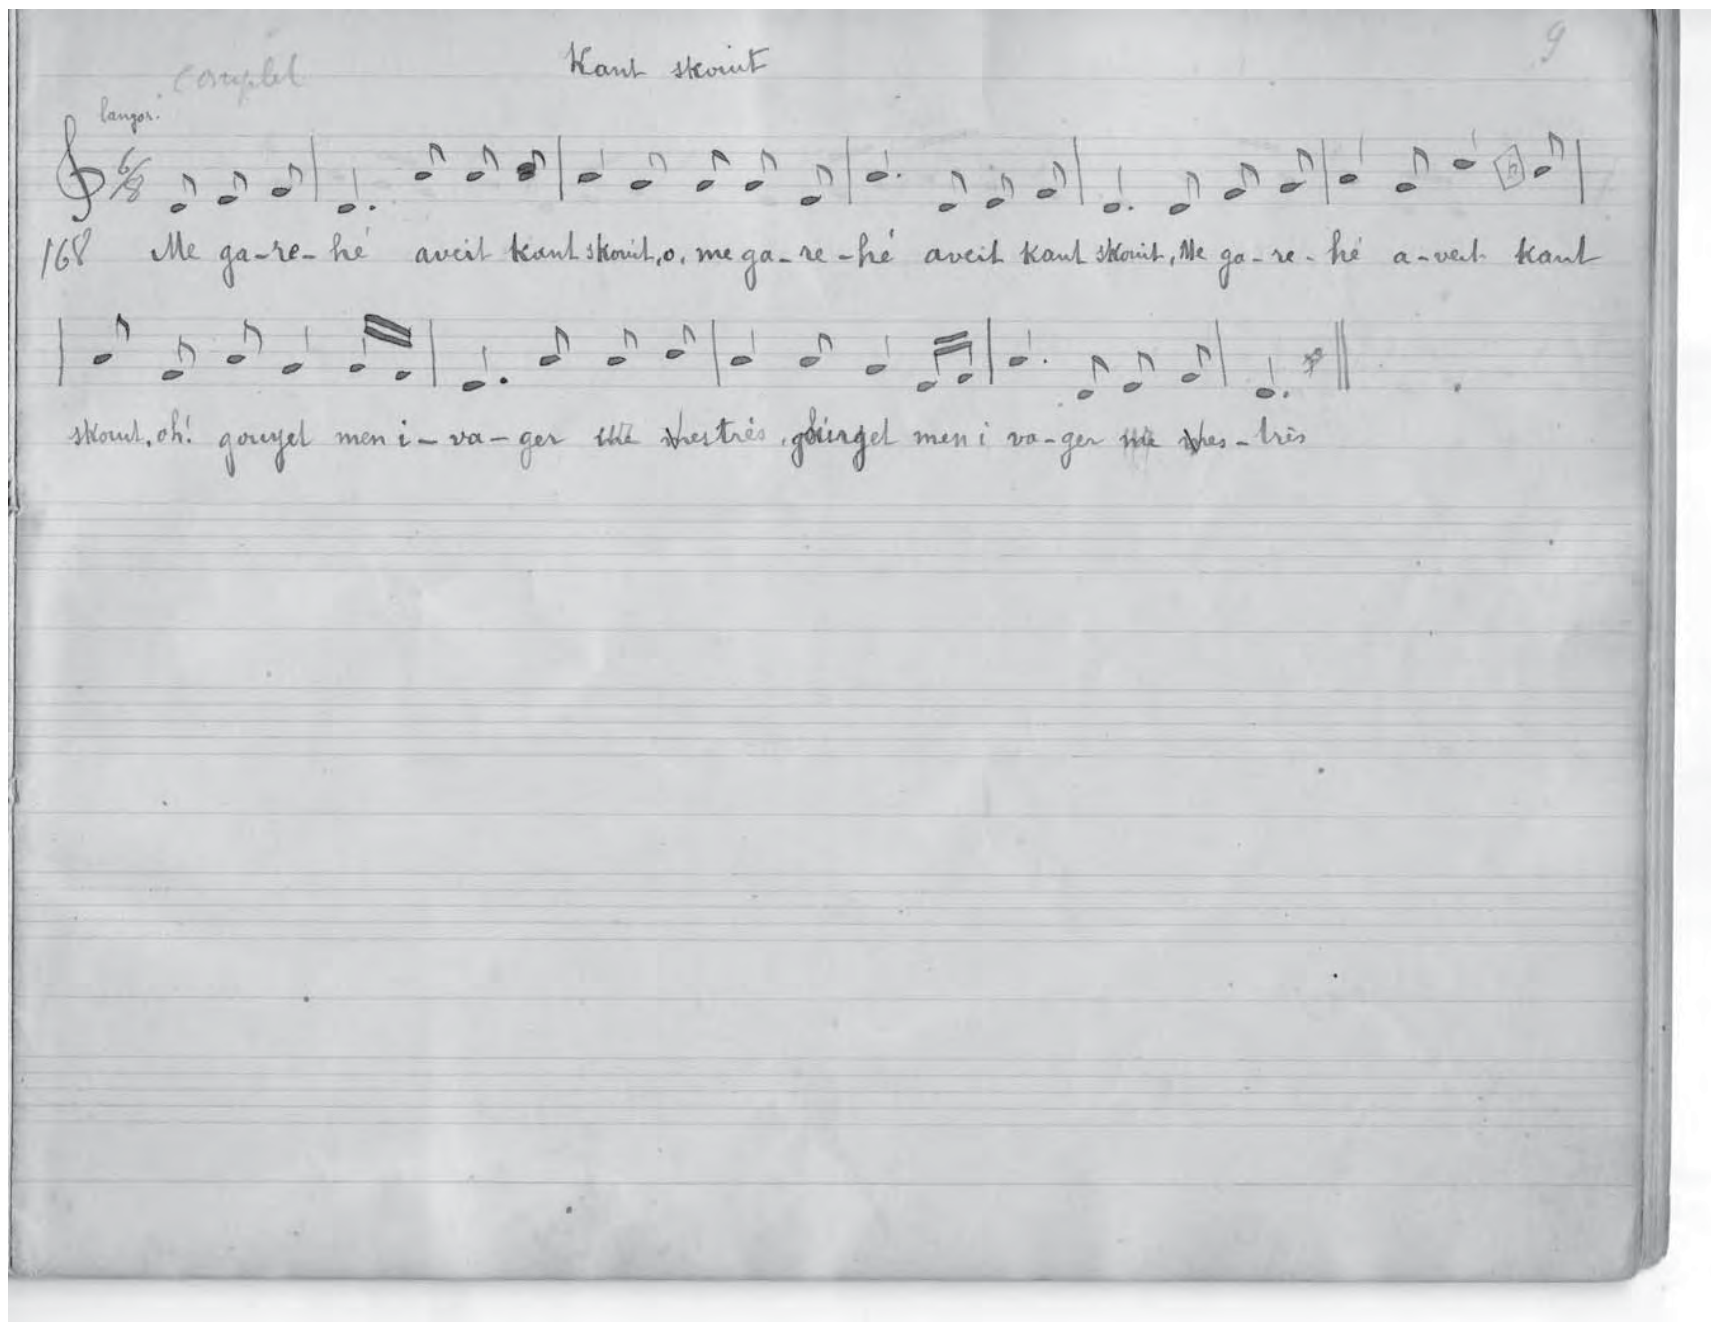 complet Kant skouit 9
langor.
6/8
168 Me ga-re-hé aveit kant skouit, o, me ga-re-hé aveit kant skouit, Me ga-re-hé a-veit kant
skouit, oh! gouyel men i-va-ger me mestrés, gouyel men i va-ger me mes-trés